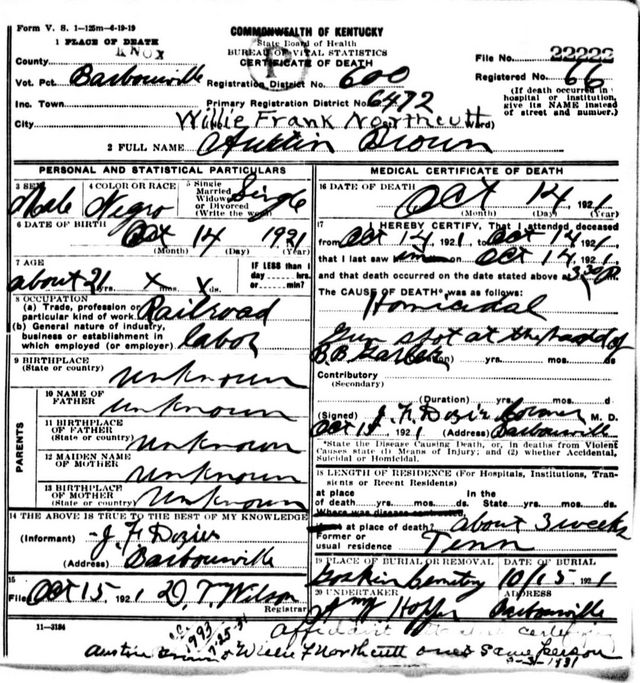 Form V. S. 1—125m—6-19-19
COMMONWEALTH OF KENTUCKY
State Board of Health
BUREAU OF VITAL STATISTICS
CERTIFICATE OF DEATH
1 PLACE OF DEATH
County KNOX
File No. 22222
Vot. Pct Barbourville Registration District No. 600 Registered No. 66
Inc. Town Primary Registration District No. 6472
(If death occurred in hospital or institution, give its NAME instead of street and number.)
City Ward)
Willie Frank Northcutt
2 FULL NAME Austin Brown
PERSONAL AND STATISTICAL PARTICULARS
3 SEX Male 4 COLOR OR RACE Negro 5 Single Married Widowed or Divorced (Write the word) Single
6 DATE OF BIRTH Oct 14 1921
(Month) (Day) (Year)
7 AGE about 21 yrs. x mos. x ds. IF LESS than 1 day... hrs. or... min?
8 OCCUPATION
(a) Trade, profession or particular kind of work Railroad
(b) General nature of industry, business or establishment in which employed (or employer) labor
9 BIRTHPLACE
(State or country) unknown
PARENTS
10 NAME OF FATHER unknown
11 BIRTHPLACE OF FATHER (State or country) unknown
12 MAIDEN NAME OF MOTHER unknown
13 BIRTHPLACE OF MOTHER (State or country) unknown
14 THE ABOVE IS TRUE TO THE BEST OF MY KNOWLEDGE
(Informant) J. F. Dozier
(Address) Barbourville
15
Filed Oct 15, 1921 D. T. Wilson
Registrar
11—3184
MEDICAL CERTIFICATE OF DEATH
16 DATE OF DEATH Oct 14, 1921
(Month) (Day) (Year)
17 I HEREBY CERTIFY, That I attended deceased
from Oct 14, 1921, to Oct 14, 1921,
that I last saw on Oct 14, 1921,
and that death occurred on the date stated above at 3:30 P.
The CAUSE OF DEATH* was as follows:
Homicidal
Gun shot at the hand of
B. B.
yrs. mos. ds
Contributory
(Secondary)
(Duration) yrs. mos. d
(Signed) J. F. Dozier Coroner M. D.
Oct 15, 1921 (Address) Barbourville
*State the Disease Causing Death, or, in deaths from Violent Causes state (1) Means of Injury; and (2) whether Accidental, Suicidal or Homicidal.
18 LENGTH OF RESIDENCE (For Hospitals, Institutions, Transients or Recent Residents)
at place of death yrs. mos. ds. In the State yrs. mos. ds.
Where was disease contracted,
at place of death? about 3 weeks
Former or usual residence Tenn
19 PLACE OF BURIAL OR REMOVAL DATE OF BURIAL
Cemetery 10/15 1921
20 UNDERTAKER ADDRESS
Hopper Barbourville
Affidavit
Austin Brown & Willie F Northcutt ones same person